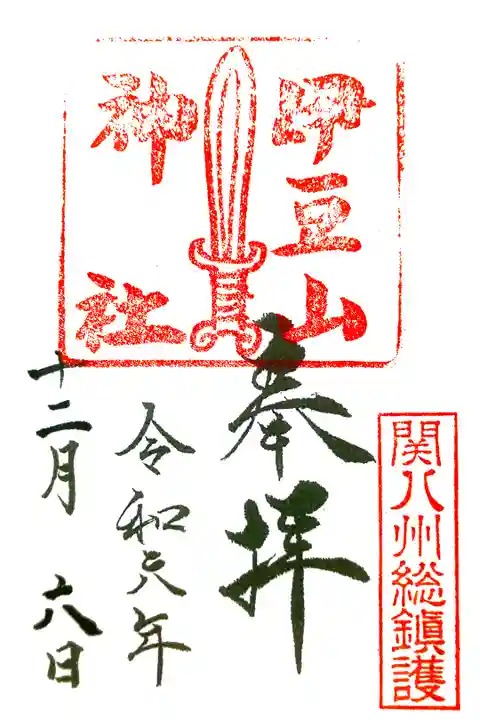 関八州総鎭護
伊豆山
神社
奉拝
令和元年
十二月 六日